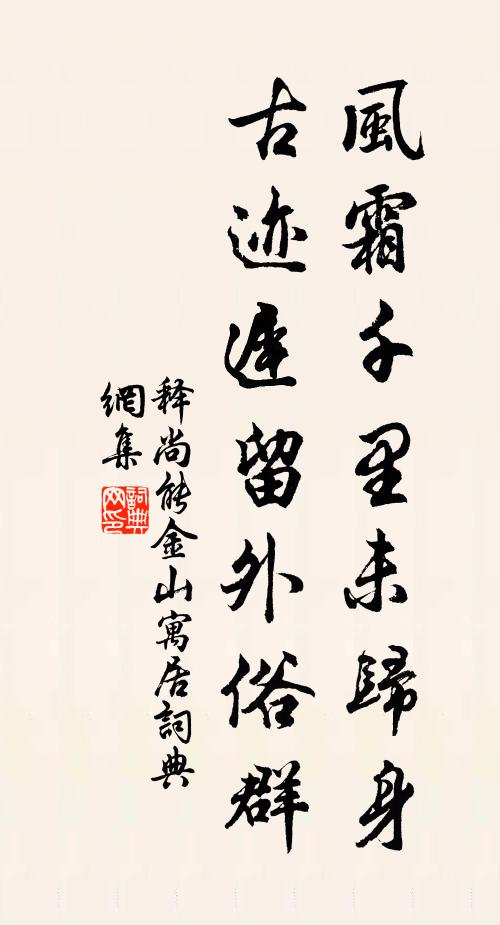 風霜千里未歸身
古迹遲留外俗群
释尚能金山寓居詞典
網集
詞典网印